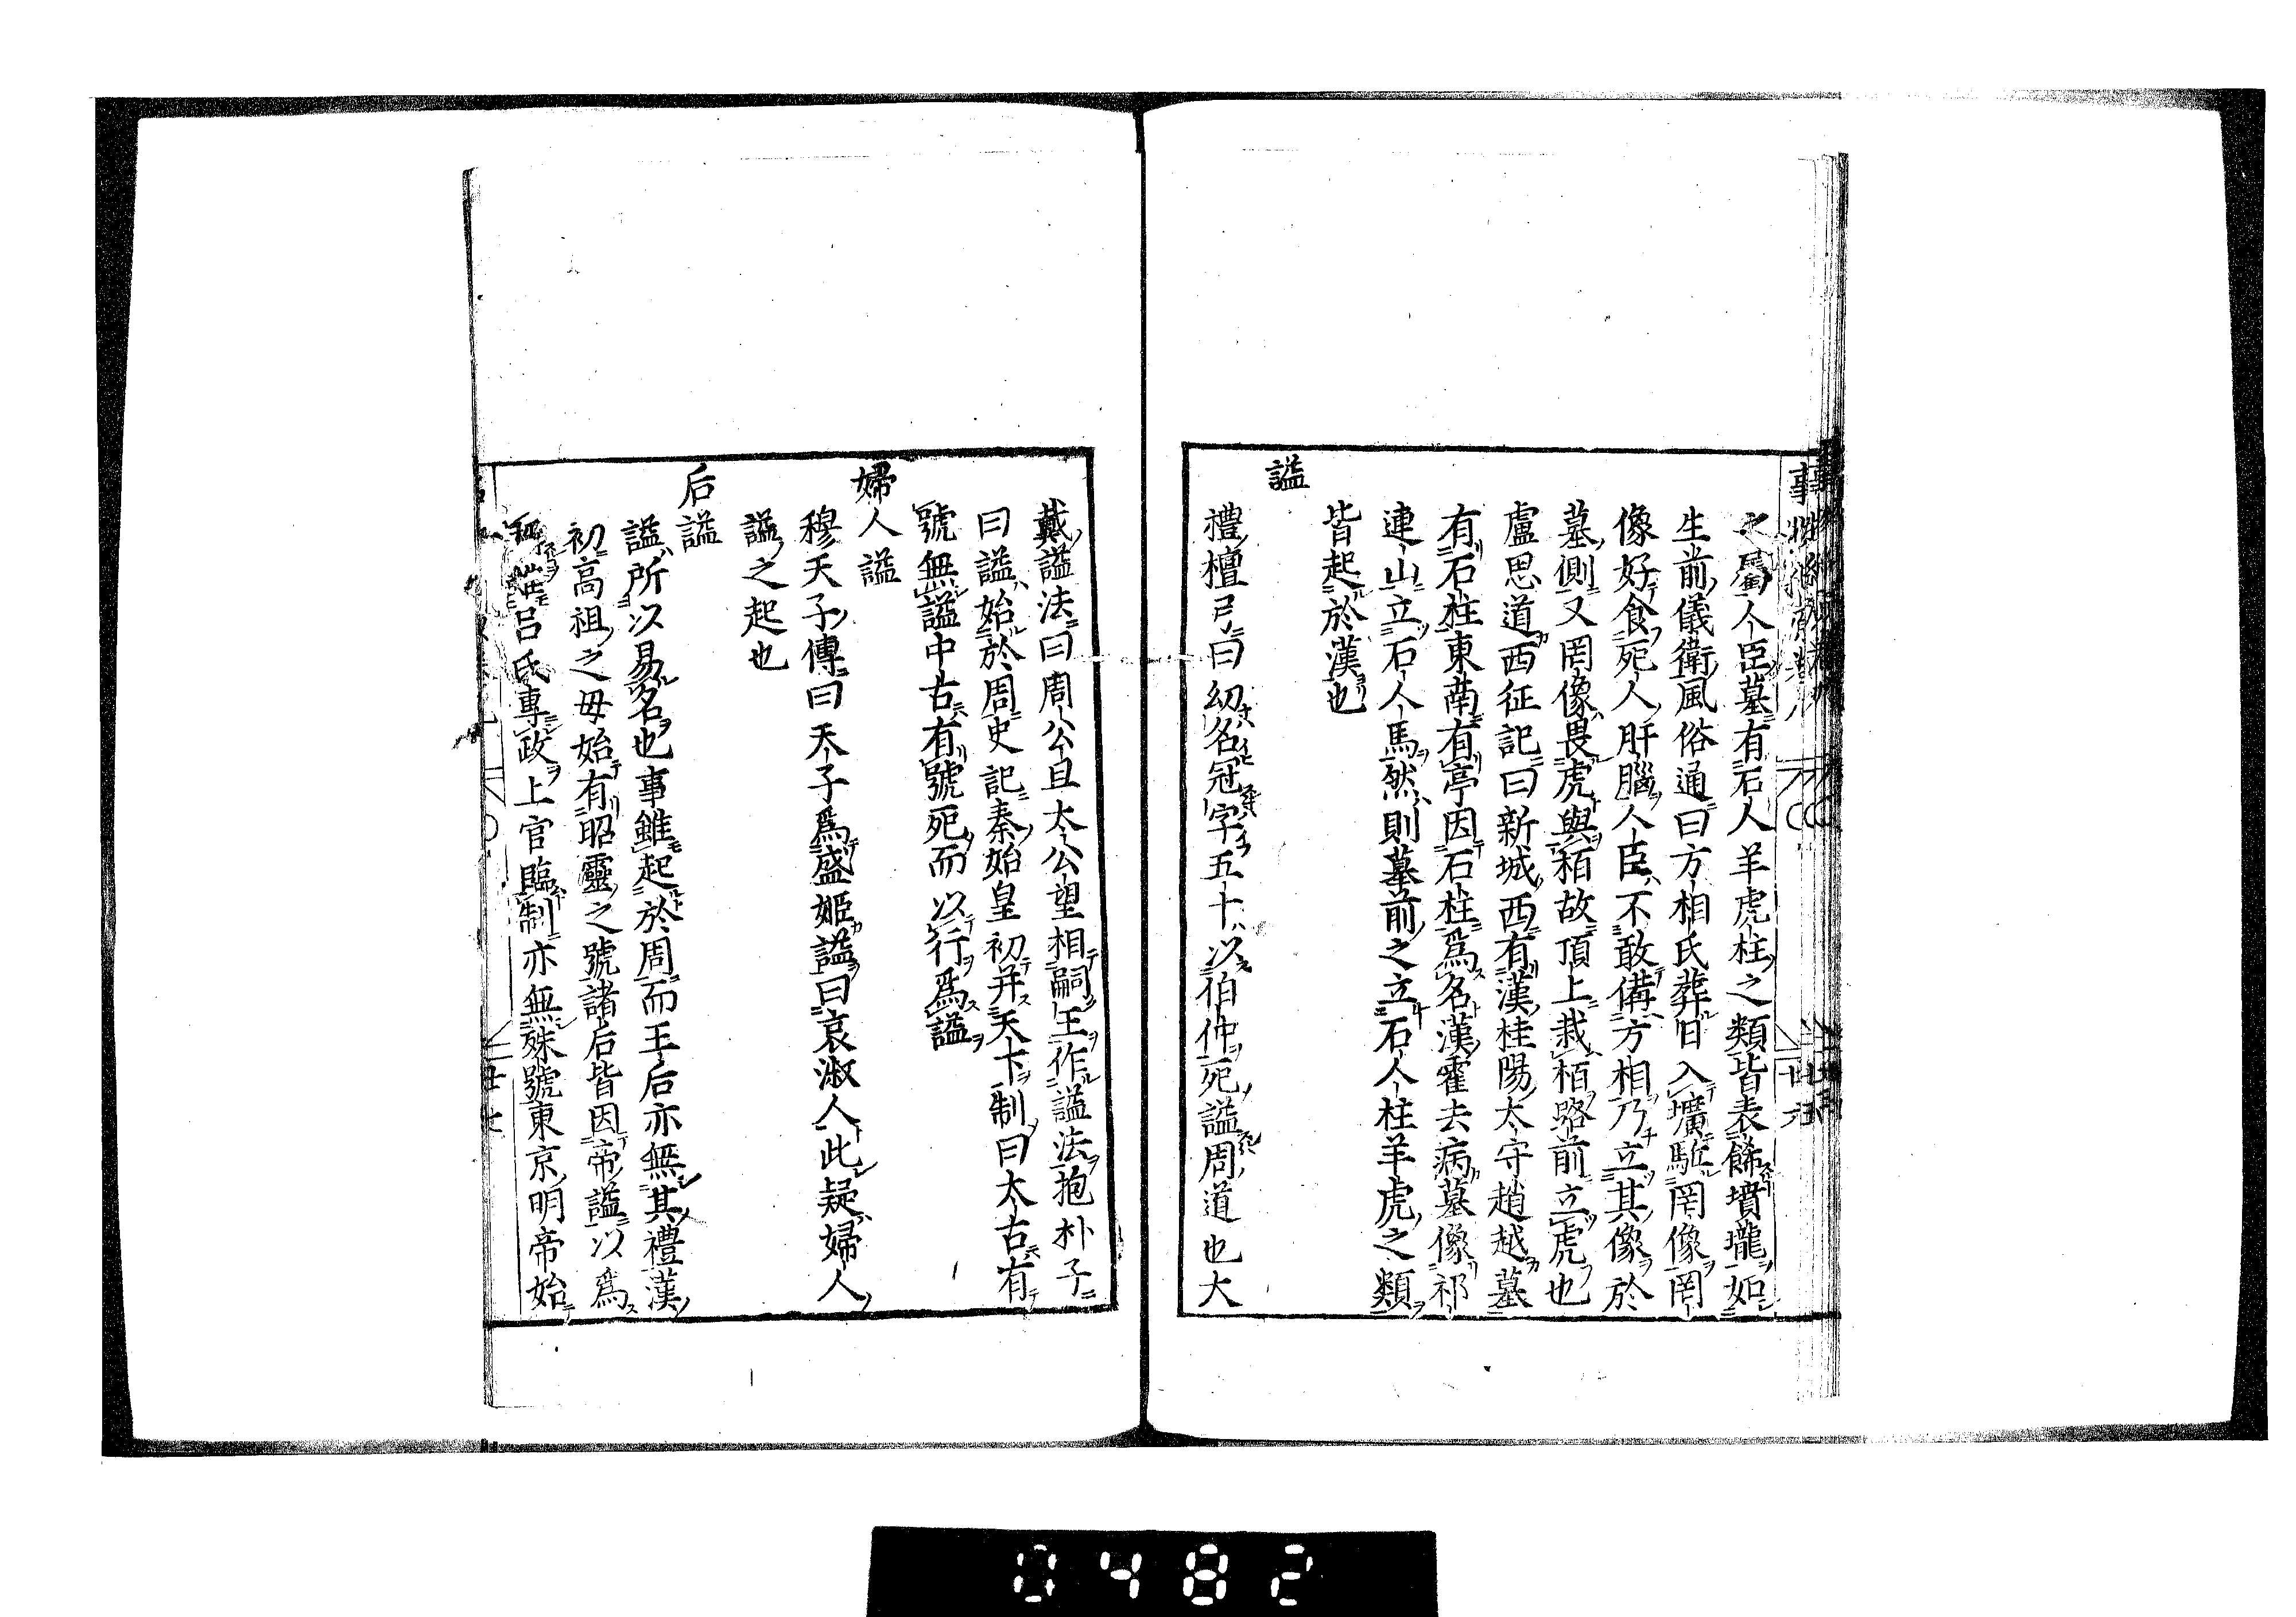 之屬人臣墓有石人羊虎柱之類皆表餙墳壠如
生前儀衛風俗通曰方相氏葬日入壙駈罔像罔
像好食死人肝腦人臣不敢備方相乃立其像於
墓側又罔像畏虎與栢故頂上栽栢路前立虎也
盧思道西征記曰新城西有漢桂陽太守趙越墓
有石柱東南有亭因石柱爲名漢霍去病墓像祁
連山立石人馬然則墓前之立石人柱羊虎之類
皆起於漢也
謚
禮檀弓曰幼名冠字五十以伯仲死謚周道也大
戴謚法曰周公旦太公望相嗣王作謚法抱朴子
曰謚始於周史記秦始皇初并天下制曰太古有
號無謚中古有號死而以行爲謚
婦人謚
穆天子傳曰天子爲盛姬謚曰哀淑人此疑婦人
謚之起也
后謚
謚所以易名也事雖起於周而王后亦無其禮漢
初高祖之毋始有昭靈之號諸后皆因帝謚以爲
呂氏專政上官臨制亦無殊號東京明帝始
0482